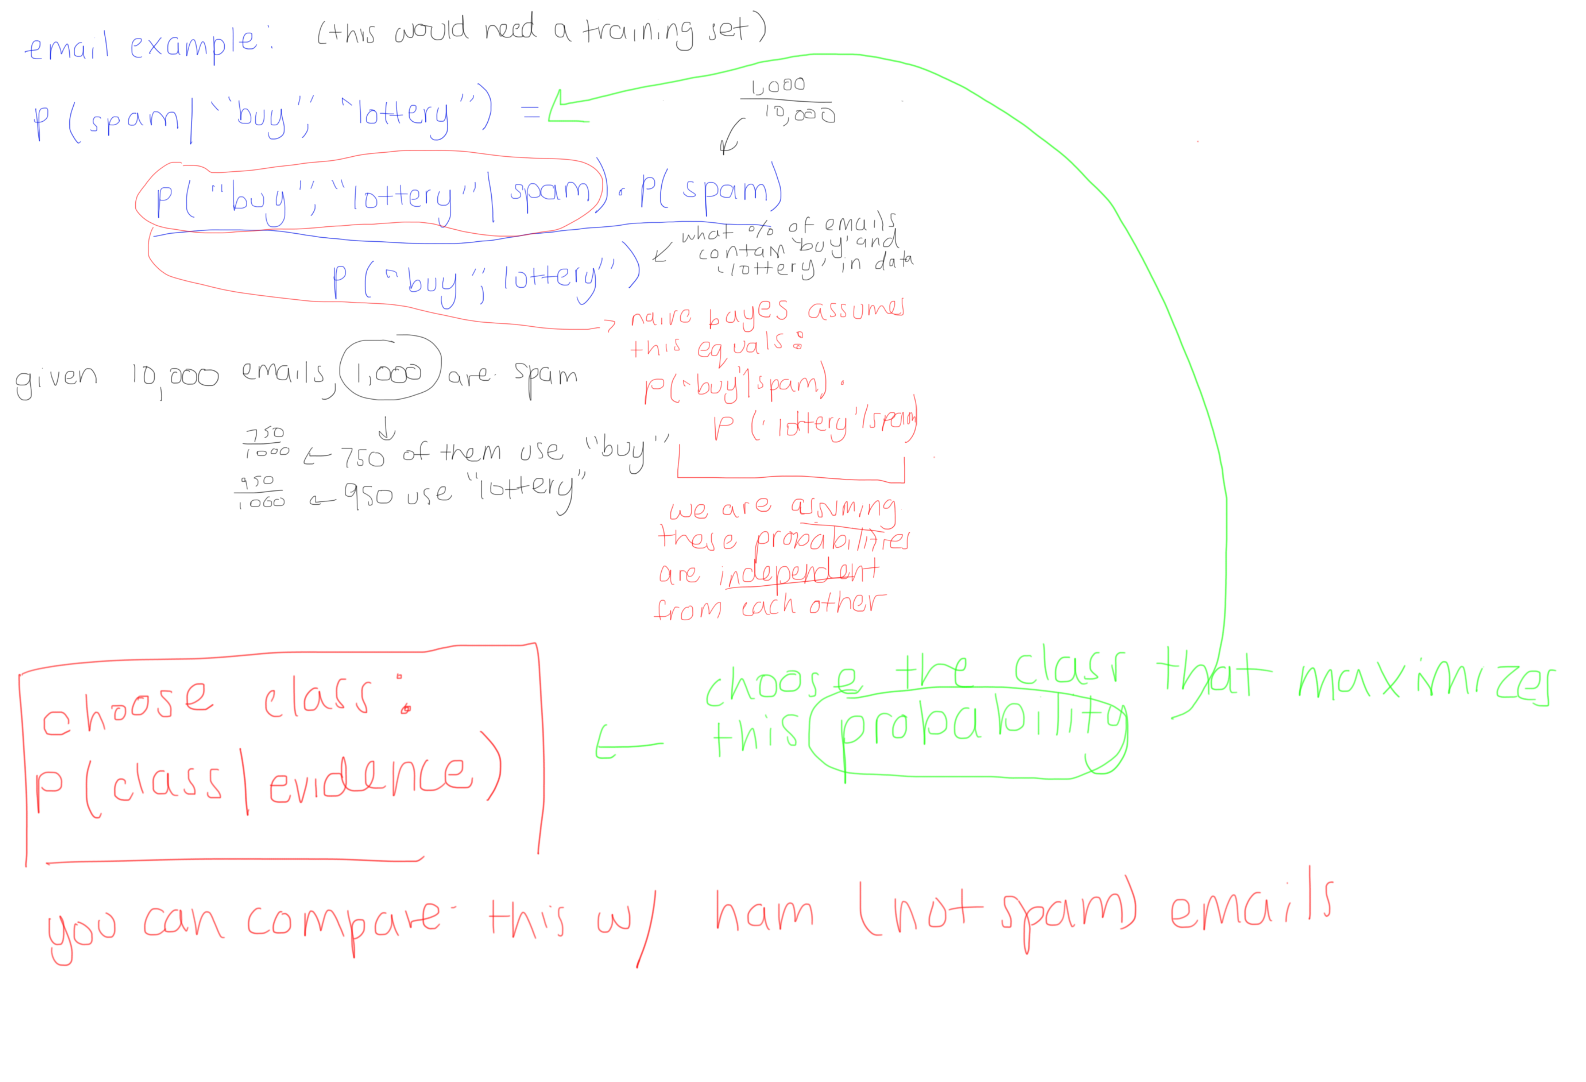 email example: (this would need a training set)
P(spam | "buy", "lottery") =
1,000
10,000
P("buy", "lottery" | spam) · P(spam)
P("buy", lottery")
what % of emails
contain 'buy' and
'lottery' in data
naive bayes assumes
this equals:
P("buy"|spam) ·
P('lottery'|spam)
we are assuming
these probabilities
are independent
from each other
given 10,000 emails, 1,000 are spam
750
1000
← 750 of them use "buy"
950
1000
← 950 use "lottery"
choose the class that maximizes
this probability
choose class:
P(class | evidence)
you can compare this w/ ham (not spam) emails